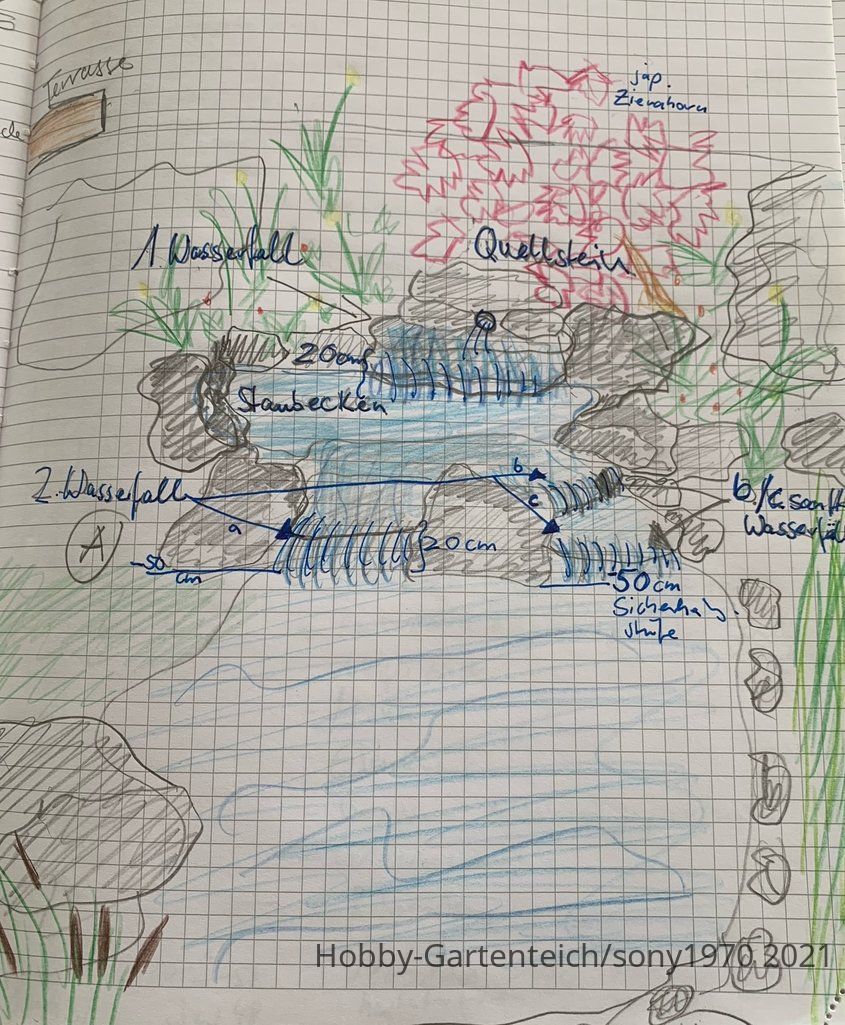 Terrasse
jap.
Zierahorn
1. Wasserfall
Quellstein
20cm
Staubecken
2. Wasserfall
b
c
a
b/c sanft
Wasserfäl
A
20cm
-50
cm
-50cm
Sicherheits
stufe
Hobby-Gartenteich/sony1970 2021